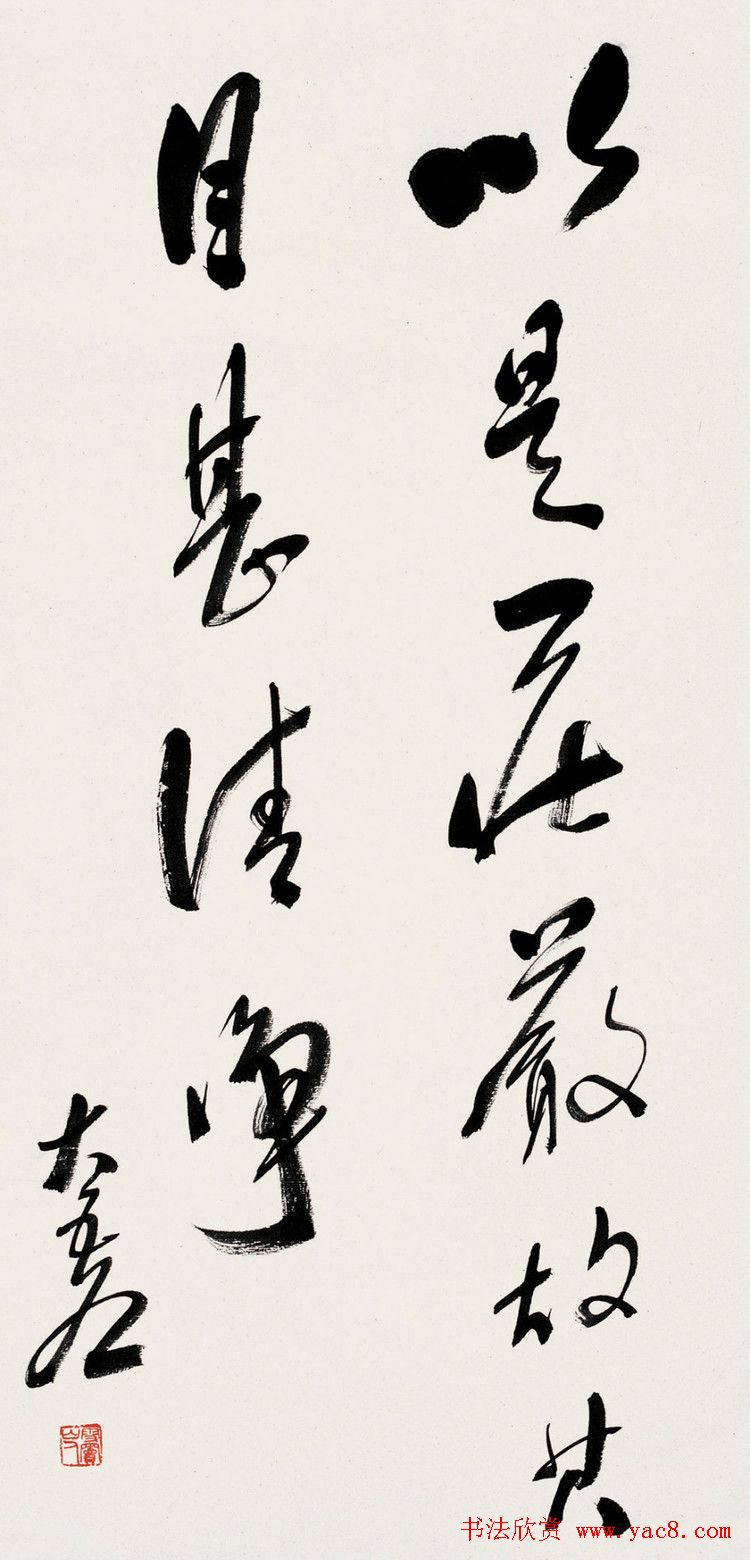 以是庄嚴故其
目甚清淨
大
书法欣赏 www.yac8.com